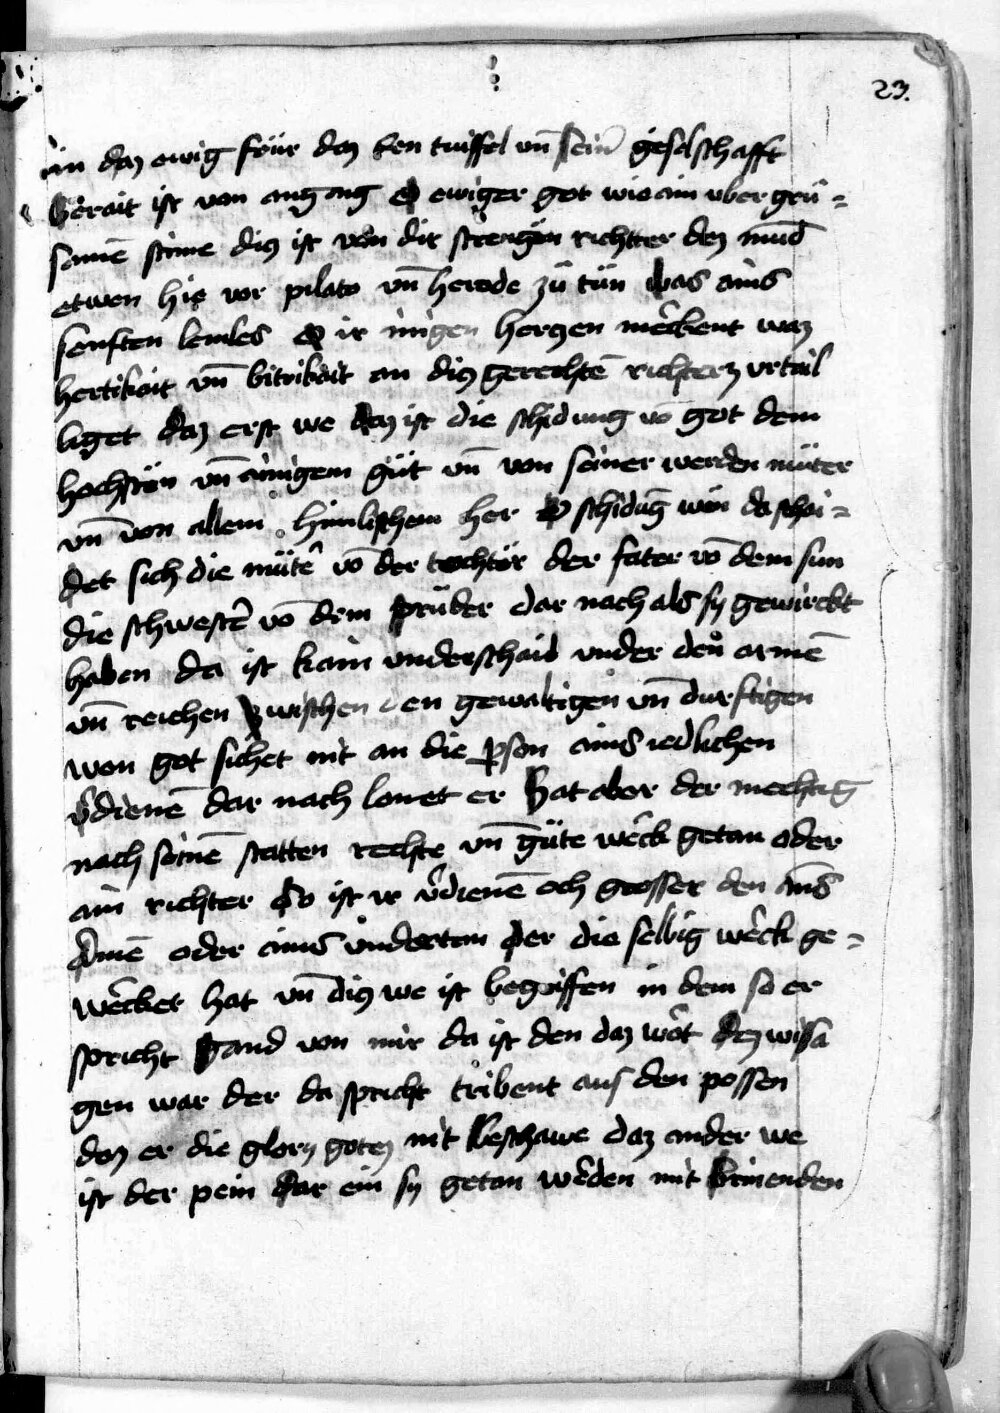 23.
in daz ewig feür daz den tuiffel vn̄ sein̄ geselschafft
berait ist von angang O ewiger got wie ain vber gru͂=
samē stime diz ist von dir strengen richtter dez mūd
etwen hie vor pilato vn̄ herode zu͂ tün was ains
senften lemles O ir inigen herczen mêckent waz
hertikait vn̄ bitrikait an diz gerechtē richterz vrtail
liget daz erst we daz ist die schidung vō got dem
hochsten vn̄ ainigem güt vn̄ von seiner werden müter
vn̄ von allem himlischem her O schidūg wen da schai=
det sich die mütê vō der tochtër der fater vō dem sun
die schwestê vō dem prüder dar nach als sy gewirckt
haben da ist kain vnderschaid vnder den armē
vn̄ reichen zwischen den gewaltigen vn̄ durftigen
won got sichet nit an die ꝑson ains iedlichen
v̂dienē dar nach lonet er Hat aber der mechtig
nach seinē statten rechte vn̄ güte wêck getan oder
ain richter So ist ir v̂dienē och grosser den ains
armē oder ains vndertan der die selbig wêck ge=
wêcket hat vn̄ diz we ist begriffen in dem so er
spricht Gand von mir da ist den daz wôt dez wissa
gen war der da spricht tribent aus den possen
daz er die glory gotez nit beschawe daz ander we
ist der pein dar ein sy getan wêden mit brinenden